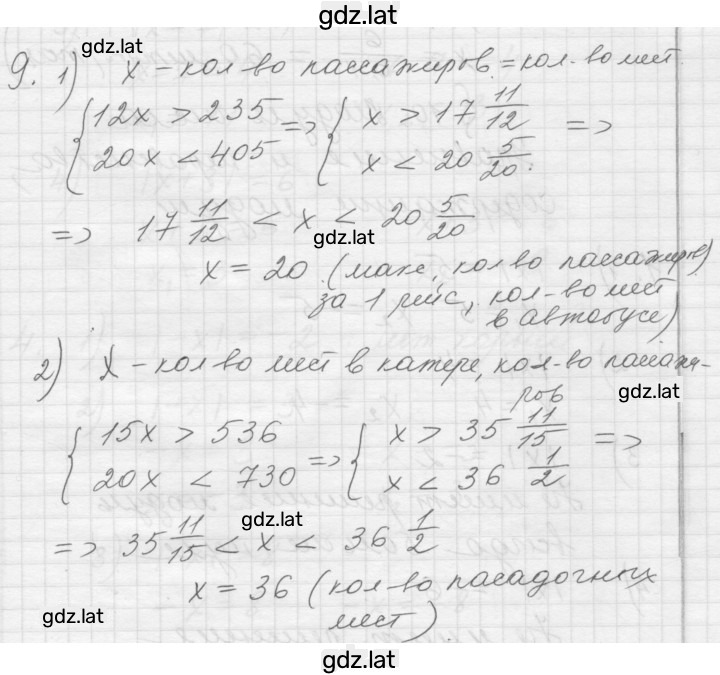 gdz.lat
gdz.lat
9. 1) x - кол-во пассажиров = кол-во мест
{ 12x > 235 => { x > 17 11/12 =>
{ 20x < 405 { x < 20 5/20.
=> 17 11/12 < x < 20 5/20
gdz.lat
x = 20 (макс, кол-во пассажиров)
за 1 рейс, кол-во мест
в автобусе)
2) x - кол-во мест в катере, кол-во пассажи-
ров
gdz.lat
{ 15x > 536 => { x > 35 11/15 =>
{ 20x < 730 { x < 36 1/2
gdz.lat
=> 35 11/15 < x < 36 1/2
x = 36 (кол-во посадочных
мест)
gdz.lat
gdz.lat